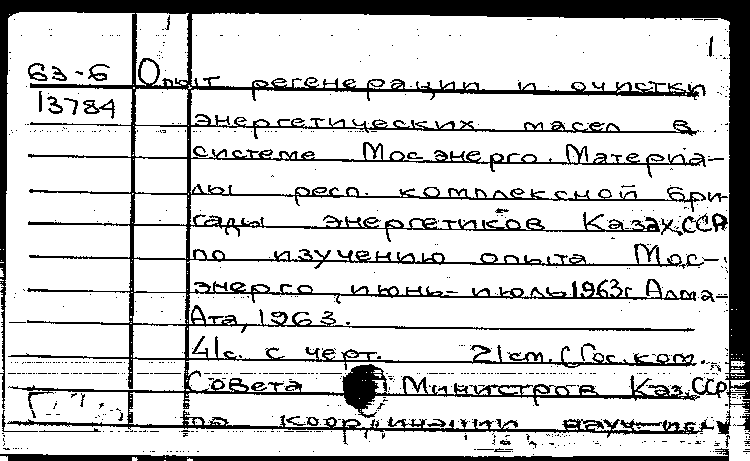 1
63-6 Опыт регенерации и очистки
13784 энергетических масел в
системе Мосэнерго. Материа-
лы респ. комплексной бри-
гады энергетиков Казах.ССР
по изучению опыта Мос-
энерго, июнь-июль 1963г. Алма-
Ата, 1963.
41с. с черт. 21см. (Гос. ком.
Совета Министров Каз.ССР
по координации науч.-